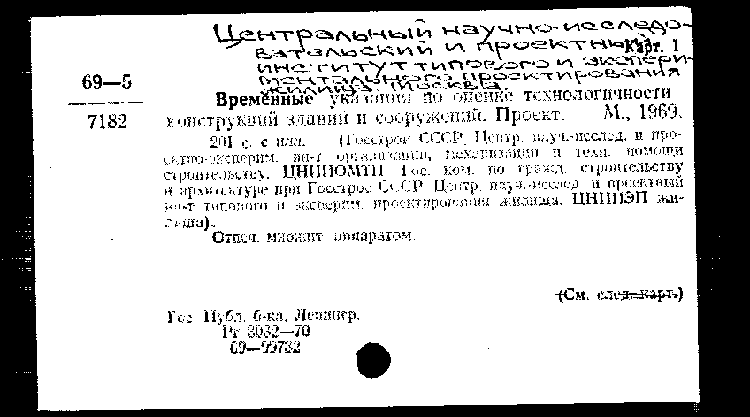 Центральный научно-исследо-
вательский и проектный Карт. 1
институт типового и экспери-
ментального проектирования
жилища. Москва.
69—5
Временные указания по оценке технологичности
7182 конструкций зданий и сооружений. Проект. М., 1969.
201 с. с илл. (Госстрой СССР. Центр. науч.-исслед. и про-
ектно-эксперим. ин-т организации, механизации и техн. помощи
строительству. ЦНИИОМТП. Гос. ком. по гражд. строительству
и архитектуре при Госстрое СССР. Центр. науч.-исслед. и проектный
ин-т типового и эксперим. проектирования жилища. ЦНИИЭП жи-
лища).
Отпеч. множит. аппаратом.
(См. след. карт.)
Гос. Публ. б-ка. Ленингр.
Рт 3032—70
69—99782